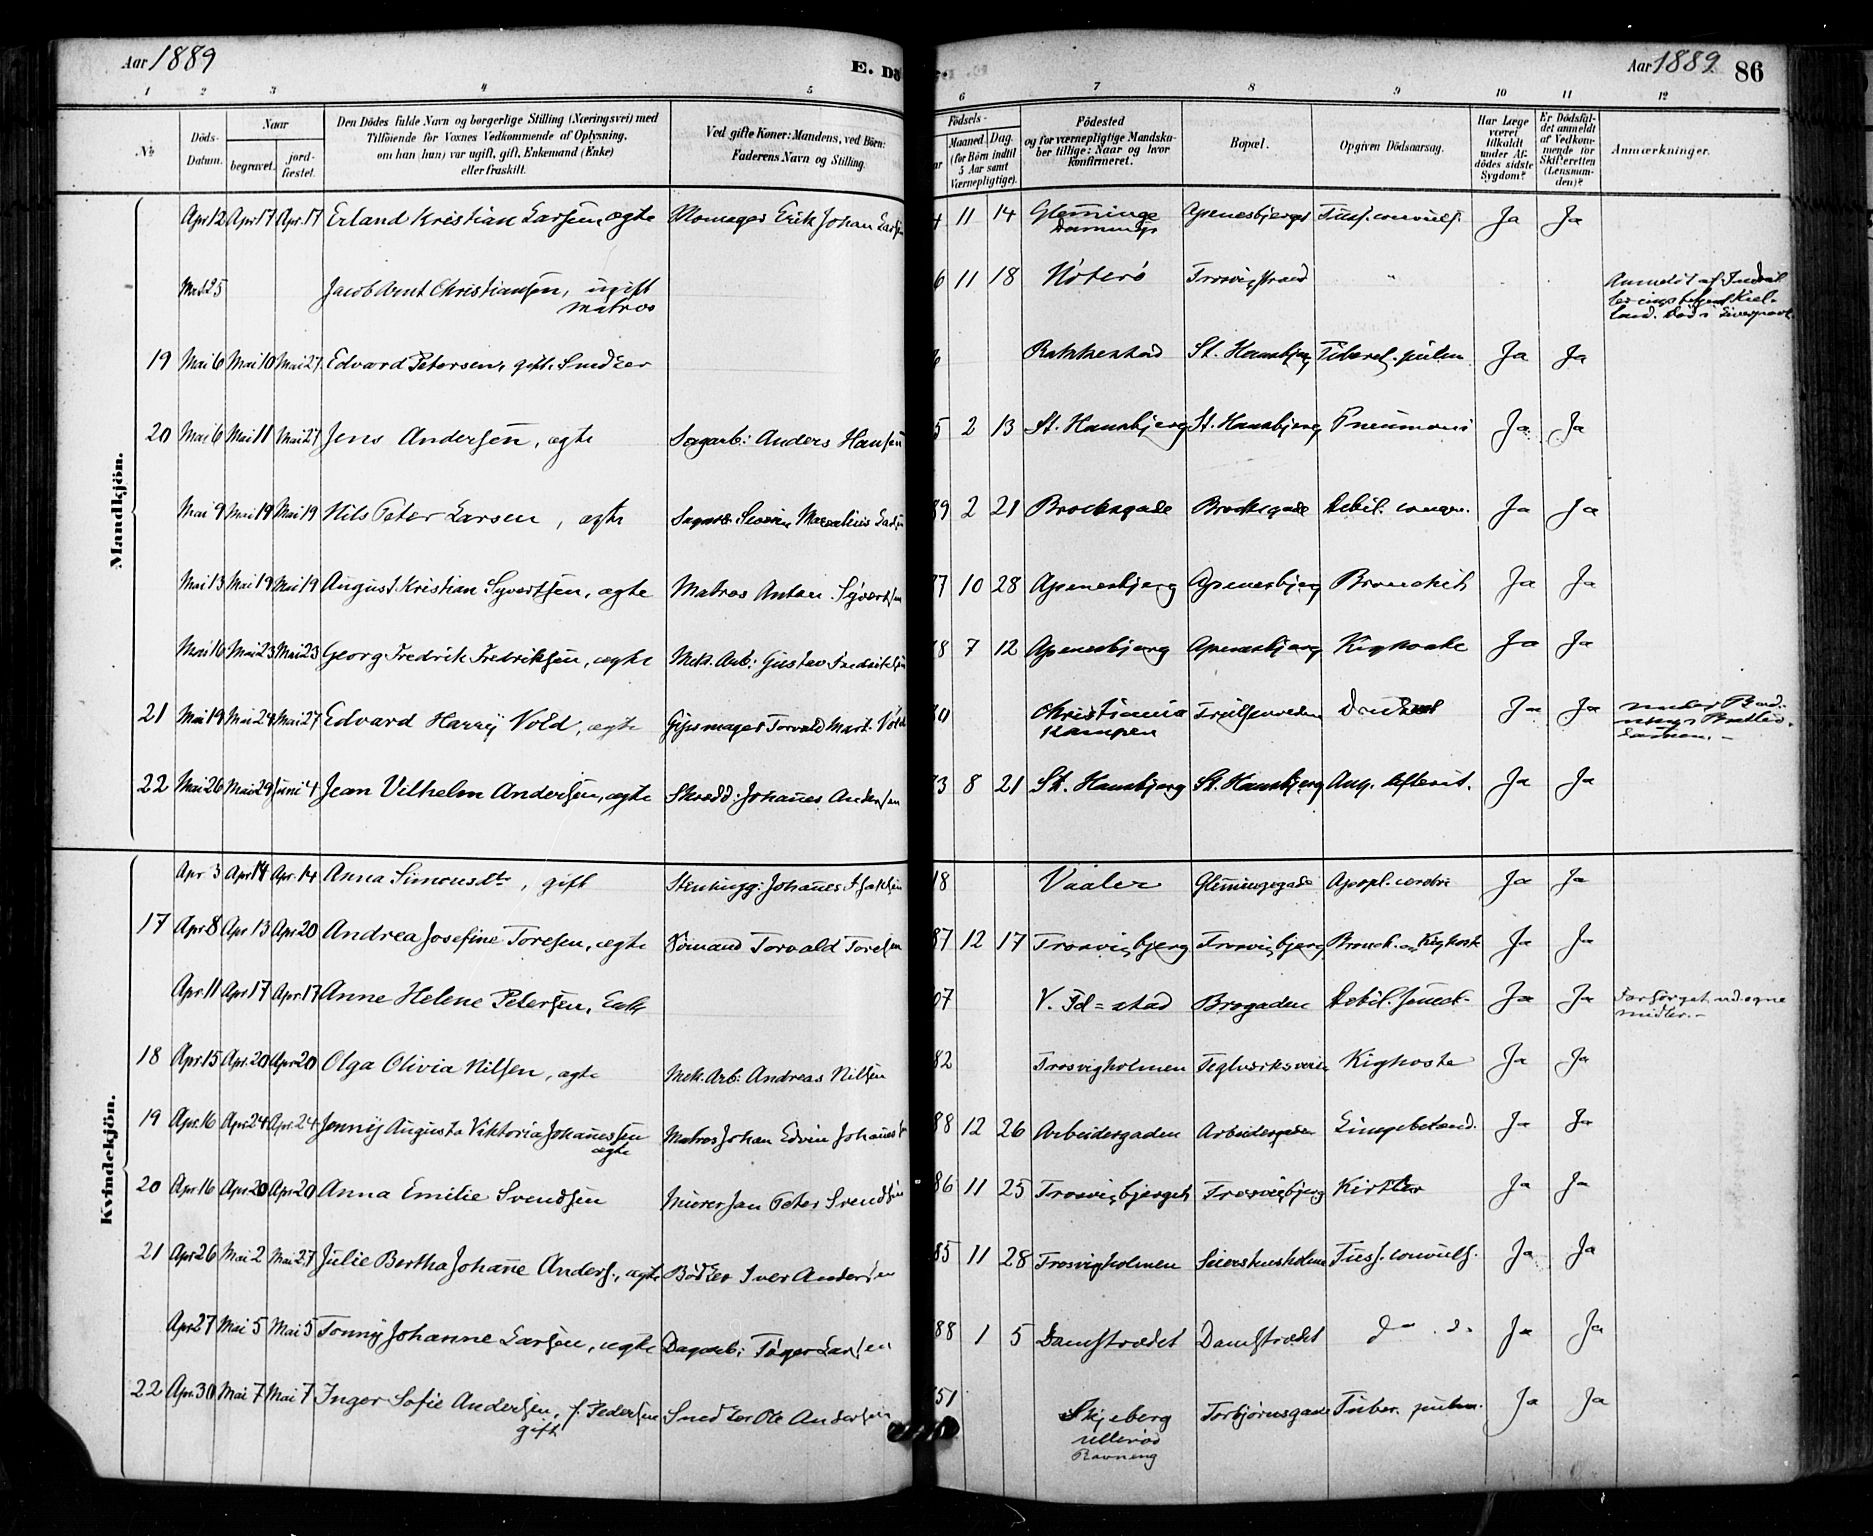 Aar 1889
E. Dö
Aar 1889
86
1 2 3 4 5 6 7 8 9 10 11 12
№
Döds-
Datum.
Naar
begravet.
jord-
fæstet.
Den Dödes fulde Navn og borgerlige Stilling (Næringsvei) med
Tilföiende for Voxnes Vedkommende af Oplysning,
om han (hun) var ugift, gift, Enkemand (Enke)
eller fraskilt.
Ved gifte Koner: Mandens, ved Börn:
Faderens Navn og Stilling.
Födsels-
Maaned Dag.
(for Börn indtil
5 Aar samt
Værnepligtige).
Födested
og for værnepligtige Mandska-
ber tillige: Naar og hvor
konfirmeret.
Bopæl.
Opgiven Dödsaarsag.
Har Læge
været
tilkaldt
under Af-
dödes sidste
Sygdom?
Er Dödsfal-
det anmeldt
af Vedkom-
mende for
Skifteretten
(Lensman-
den)?
Anmærkninger.
Mandkjön.
Apr 12 Apr 17 Apr. 17 Erland Kristian Larsen, ægte Erik Johan Larsen 11 14 Glemminge Apenesbjerget Tuss. convuls. Ja Ja
Jacob Arnt Christiansen, ugift 6 11 18 Nöterö Trosvigstrand "
matros
19 Mai 6 Mai 10 Mai 27 Edvard Petersen, gift. Smed Rakkestad St. Hansbjerg Tuberel. pulm Ja Ja
20 Mai 6 Mai 11 Mai 27 Jens Andersen, ægte Sagarb: Anders Hansen 5 2 13 St. Hansbjerg St. Hansbjerg Pneumoni Ja Ja
Mai 9 Mai 19 Mai 19 Nils Peter Larsen, ægte 89 2 21 Brocksgade Brocksgade Debil. congen. Ja Ja
Mai 13 Mai 19 Mai 19 August Kristian Syvertsen, ægte Matros Anton Syvertsen 7 10 28 Apenesbjerg Apenesbjerg Bronchit Ja Ja
Mai 16 Mai 23 Mai 23 Georg Fredrik Fredriksen, ægte Mek. Arb: Gustav Fredriksen 8 7 12 Apenesbjerg Apenesbjerg Kighoste Ja Ja
21 Mai 19 Mai 24 Mai 27 Edvard Harry Vold, ægte Gipsmager Torvald Mart. Vold 0 Christiania Druknet Ja Ja
Kampen
22 Mai 26 Mai 29 Juni 4 Jean Vilhelm Andersen, ægte Skrædd: Johannes Andersen 3 8 21 St. Hansbjerg St. Hansbjerg Ja Ja
Kvindekjön.
Apr 3 Apr 14 Apr. 14 Anna Simonsdt., gift Stenhugg: Johannes 18 Vaaler Glemmingegade Apopl. cerebri Ja Ja
17 Apr 8 Apr 13 Apr 20 Andrea Josefine Toresen, ægte Sömand Torvald Toresen 87 12 17 Trosvigbjerg Trosvigbjerg Bronch. og Kighoste Ja Ja
Apr. 11 Apr 17 Apr. 17 Anne Helene Petersen, Enke 07 V. Fd=stad Brogaden Debil. senect. Ja Ja Forsörget ved egne
midler.-
18 Apr 15 Apr. 20 Apr 20 Olga Olivia Nilsen, ægte Mek. Arb: Andreas Nilsen 82 Trosvigholmen Teglverksveien Kighoste Ja Ja
19 Apr. 16 Apr 24 Apr. 24 Jenny Augusta Viktoria Johannessen Matros Johan Edvin Johannes 88 12 26 Arbeidergaden Arbeidergaden Lungebetænd. Ja Ja
ægte
20 Apr. 16 Apr 20 Apr 20 Anna Emilie Svendsen Murer Jan Peter Svendsen 86 11 25 Trosvigbjerget Trosvigbjerg Kirtler Ja Ja
21 Apr 26 Mai 2 Mai 27 Julie Bertha Johanne Anders., ægte Bödker Iver Andersen 85 11 28 Trosvigholmen Tuss. convuls. Ja Ja
Apr 27 Mai 5 Mai 5 Tonny Johanne Larsen, ægte Dagarb: Töger Larsen 88 1 5 Damstrædet Damstrædet d- . d. Ja Ja
22 Apr. 30 Mai 7 Mai 7 Inger Sofie Andersen, f. Pedersen Smed Ole Andersen 51 Skjeberg Torbjörnsgade Tuber. pulm. Ja Ja
gift Ulleröd